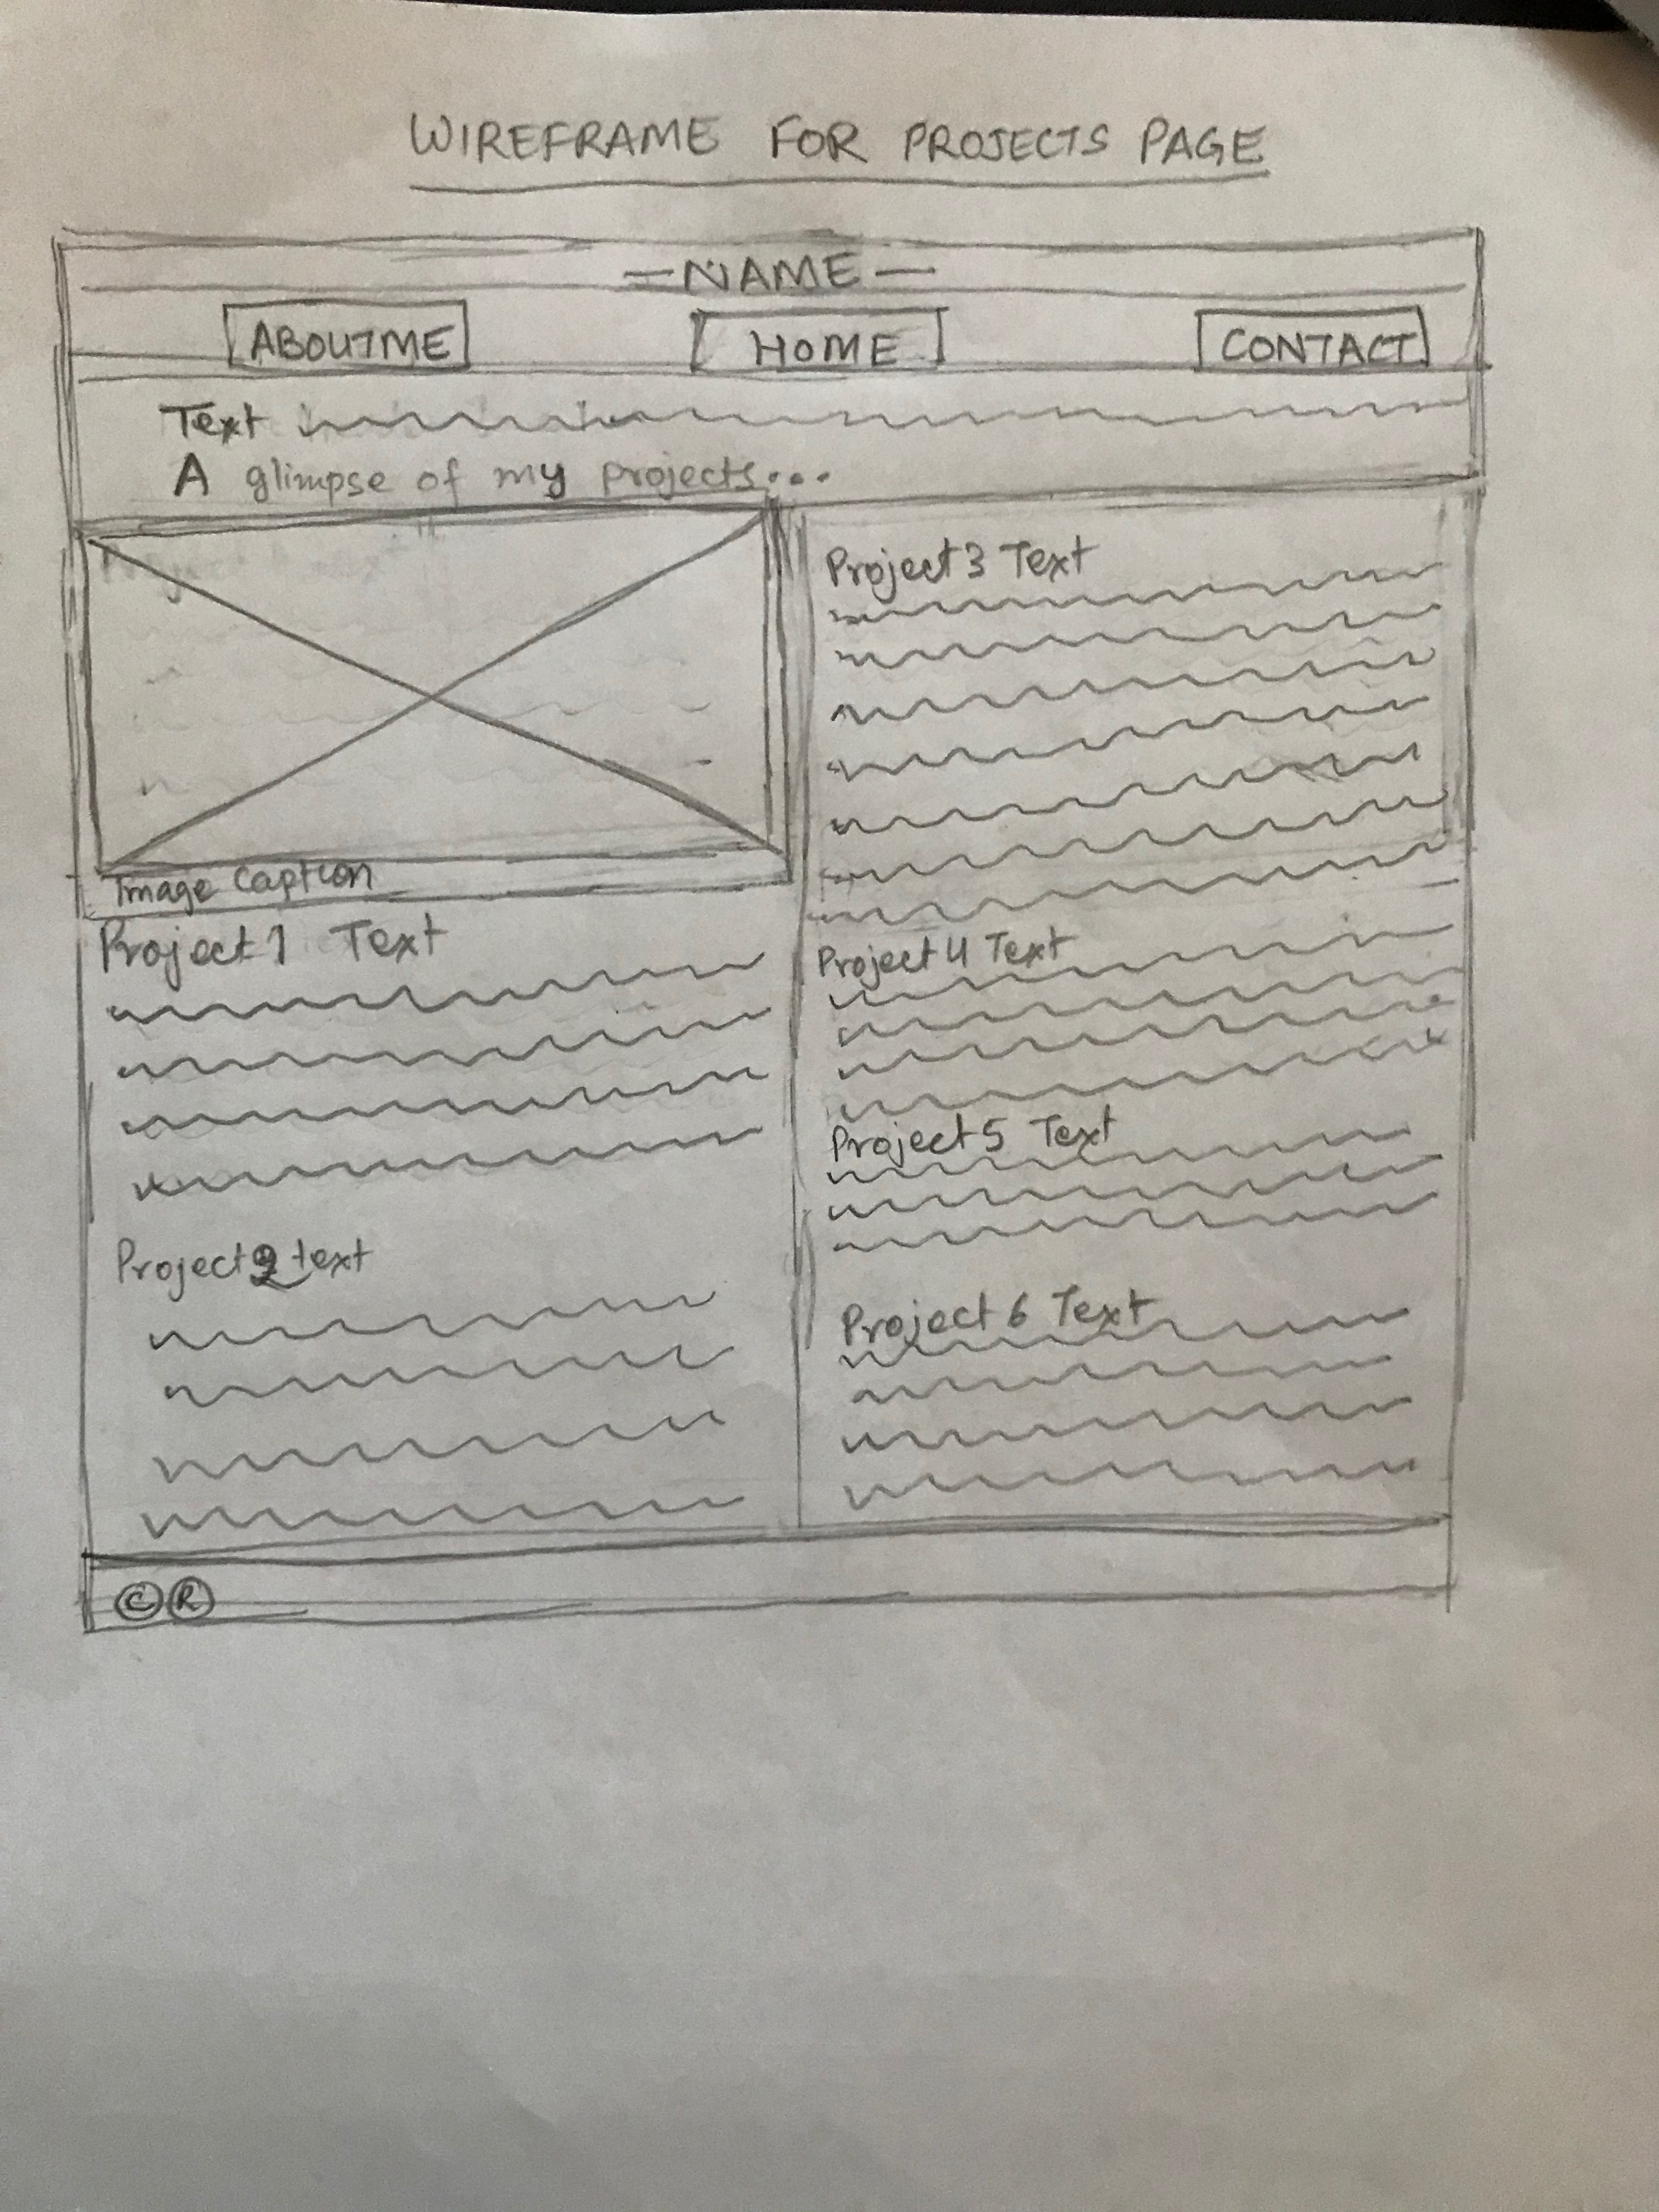 WIREFRAME FOR PROJECTS PAGE
— NAME —
ABOUTME HOME CONTACT
Text
A glimpse of my projects...
Image Caption
Project 1 Text
Project 2 text
Project 3 Text
Project 4 Text
Project 5 Text
Project 6 Text
© ®